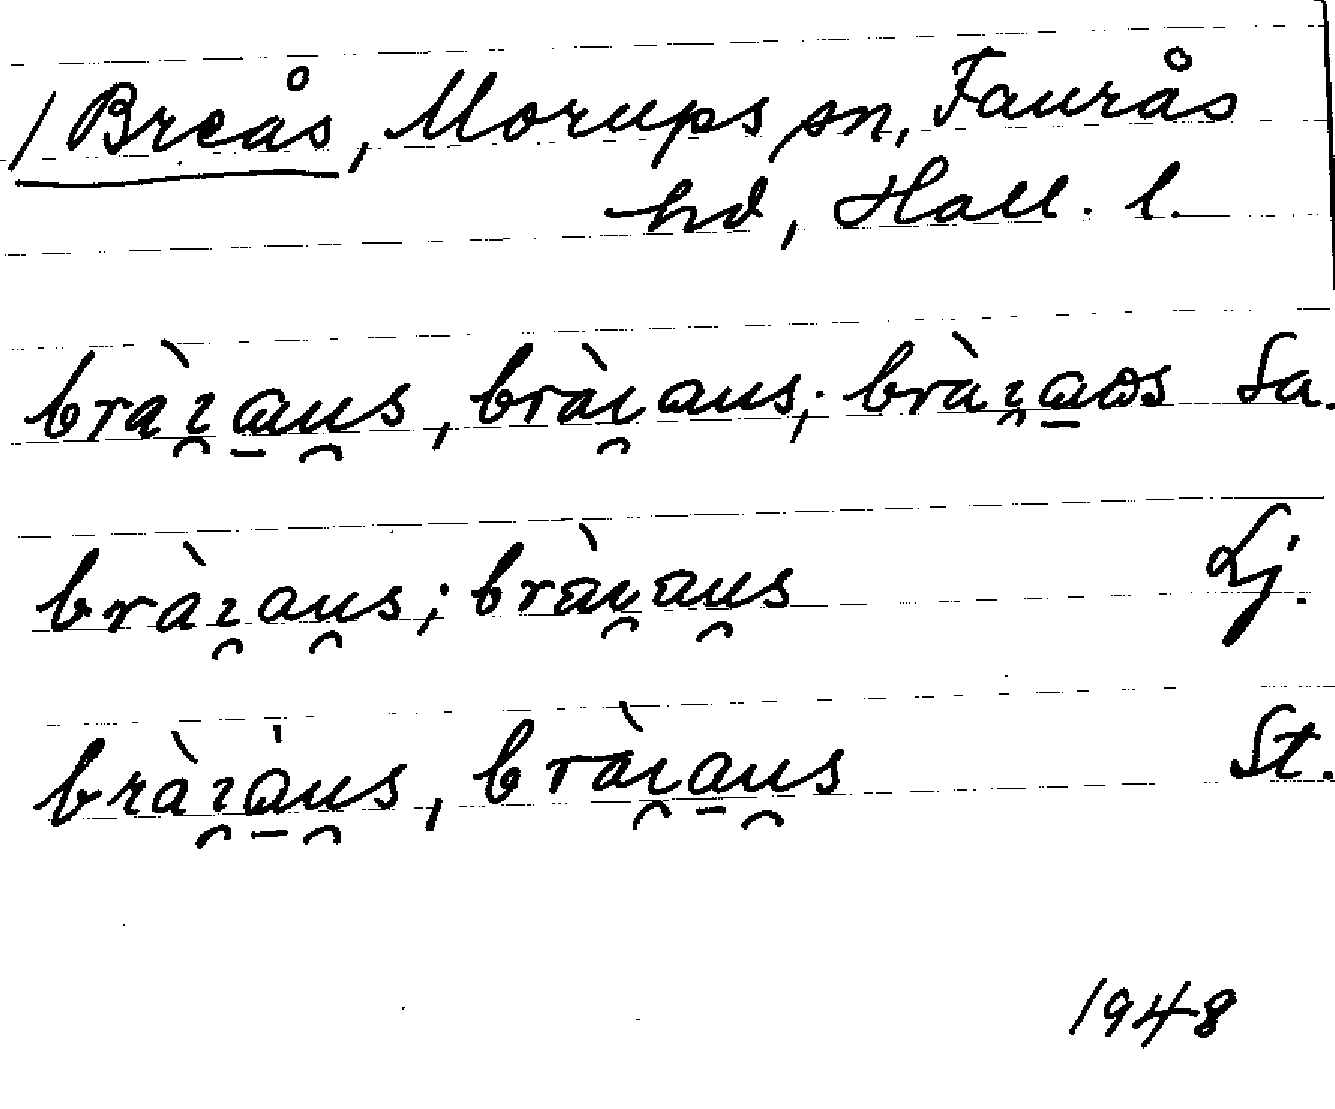 / Breås, Morups sn, Faurås
hd, Hall. l.
bràɪ̯a̱u̯s, bràɪ̯aus; bràɪ̯a̱ɷs Sa.
bràɪ̯au̯s; bràɪ̯au̯s Lj.
bràɪ̯a̱̍u̯s, bràɪ̯a̱u̯s St.
1948